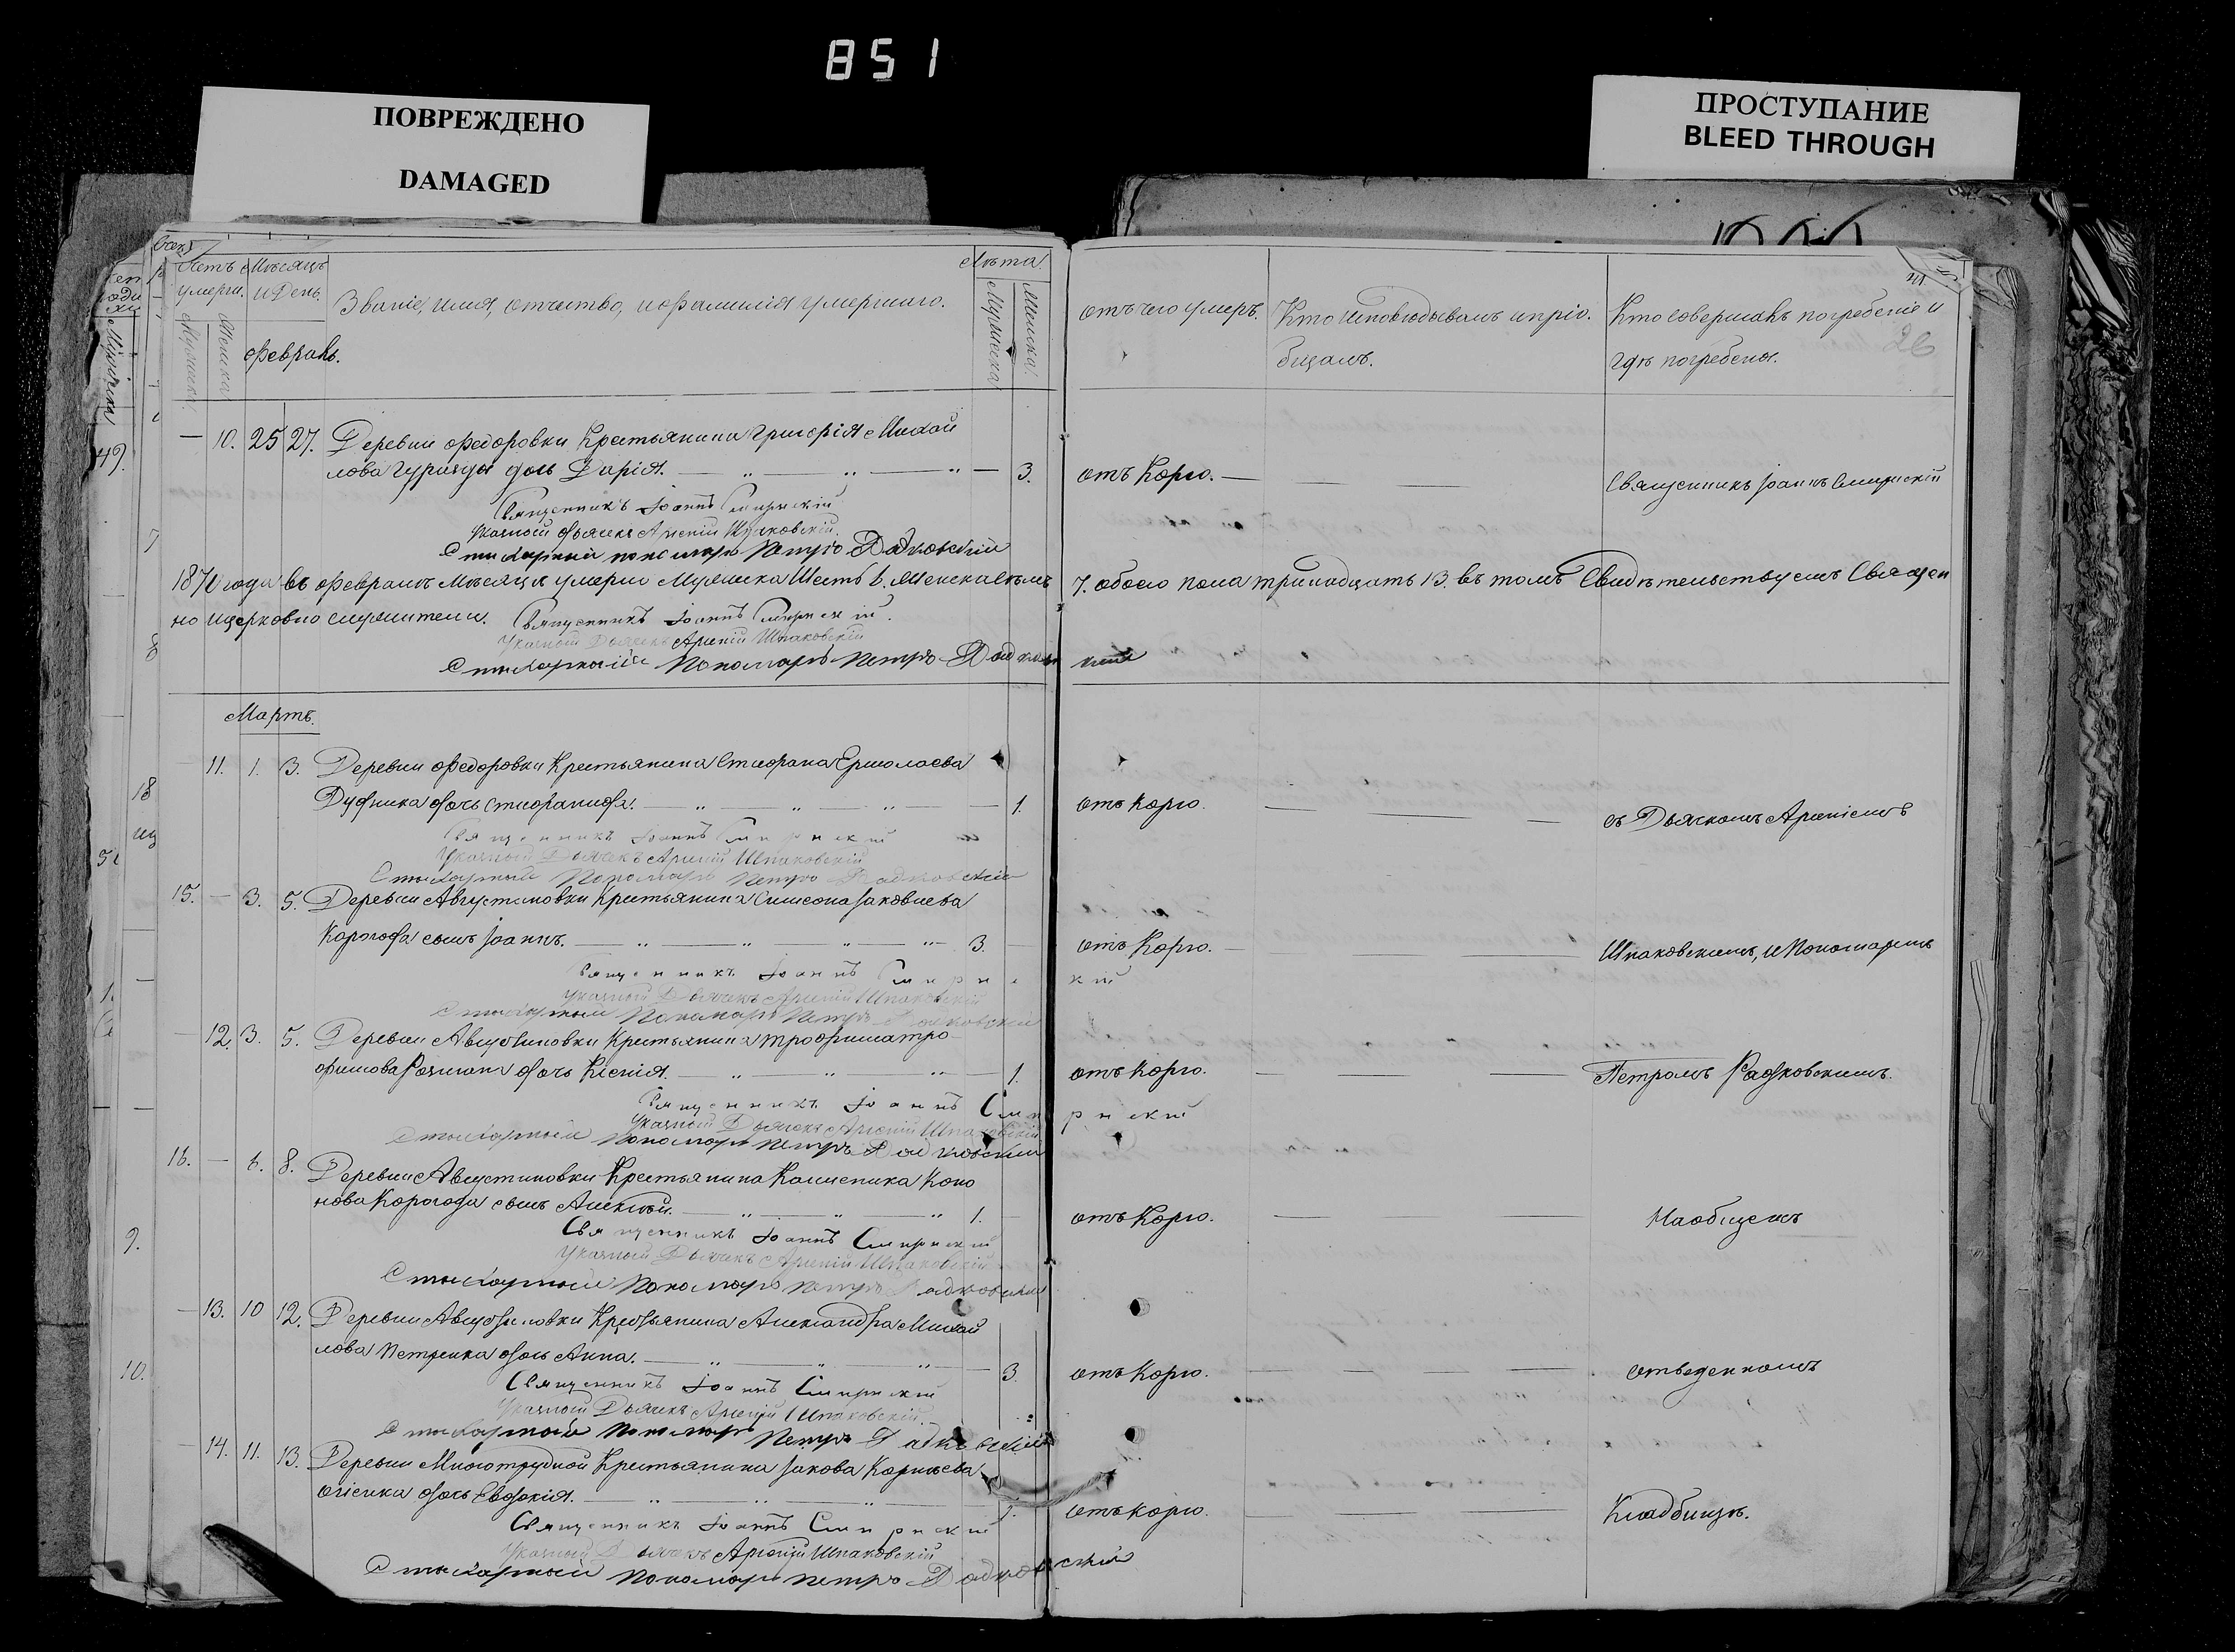 851
ПОВРЕЖДЕНО
DAMAGED
ПРОСТУПАНИЕ
BLEED THROUGH
Счетъ умерш. Мѣсяцъ и День. Званіе, имя, отчество, и фамилія умершаго. Лѣта.
Мужеска Женска Февраль. Мужеска Женска
отъ чего умеръ. Кто исповѣдывалъ и пріобщалъ. Кто совершалъ погребеніе и
гдѣ погребены.
26
— 10. 25 27. Деревни Федоровки Крестьянина Григорія Михай
лова дочь Дарія. — 3. отъ Корю. — Священникъ Іоаннъ Смирнскій
Священникъ Іоаннъ Смирнскій
Указный Дьячекъ Арсеній Шпаковскій
Стихарный пономарь Петръ Радковскій
187 года въ Февралѣ Мѣсяцѣ умерло Мужеска Шесть 6. Женска семь 7. обоего пола тринадцать 13. въ томъ Свидѣтельствуемъ Священ
но и церковно служители. Священникъ Іоаннъ Смирнскій.
Указный Дьячекъ Арсеній Шпаковскій
Стихарный Пономарь Петръ Радковскій
Мартъ.
11. 1. 3. Деревни Федоровки Крестьянина Стефана Ермолаева
Дудника дочь Стефанида. — 1. отъ Корю. — съ Дьячкомъ Арсеніемъ
Священникъ Іоаннъ Смирнскій
Указный Дьячекъ Арсеній Шпаковскій
Стихарный Пономарь Петръ Радковскій
15. — 3. 5. Деревни Августиновки Крестьянина Симеона Іаковлева
Корогода сынъ Іоаннъ. — 3. отъ Корю. — Шпаковскимъ, и Пономаремъ
Священникъ Іоаннъ Смирнскій
Указный Дьячекъ Арсеній Шпаковскій
Стихарный Пономарь Петръ Радковскій
— 12. 3. 5. Деревни Августиновки Крестьянина Трофима Тро
фимова дочь Ксенія. — 1. отъ Корю. — Петромъ Радковскимъ.
Священникъ Іоаннъ Смирнскій
Указный Дьячекъ Арсеній Шпаковскій
Стихарный Пономарь Петръ Радковскій
16. — 6. 8. Деревни Августиновки Крестьянина Калиника Коно
нова Корогода сынъ Алексѣй. — 1. отъ Корю. — На общемъ
Священникъ Іоаннъ Смирнскій
Указный Дьячекъ Арсеній Шпаковскій
Стихарный Пономарь Петръ Радковскій
— 13. 10 12. Деревни Августиновки Крестьянина Александра Михай
лова Петренка дочь Анна. — 3. отъ Корю. — отведенномъ
Священникъ Іоаннъ Смирнскій
Указный Дьячекъ Арсеній Шпаковскій
Стихарный Пономарь Петръ Радковскій
— 14. 11. 13. Деревни Многотрудной Крестьянина Іакова Корнѣева
Огіенка дочь Евдокія. — 1. отъ Корю. — Кладбищѣ.
Священникъ Іоаннъ Смирнскій
Указный Дьячекъ Арсеній Шпаковскій
Стихарный Пономарь Петръ Радковскій